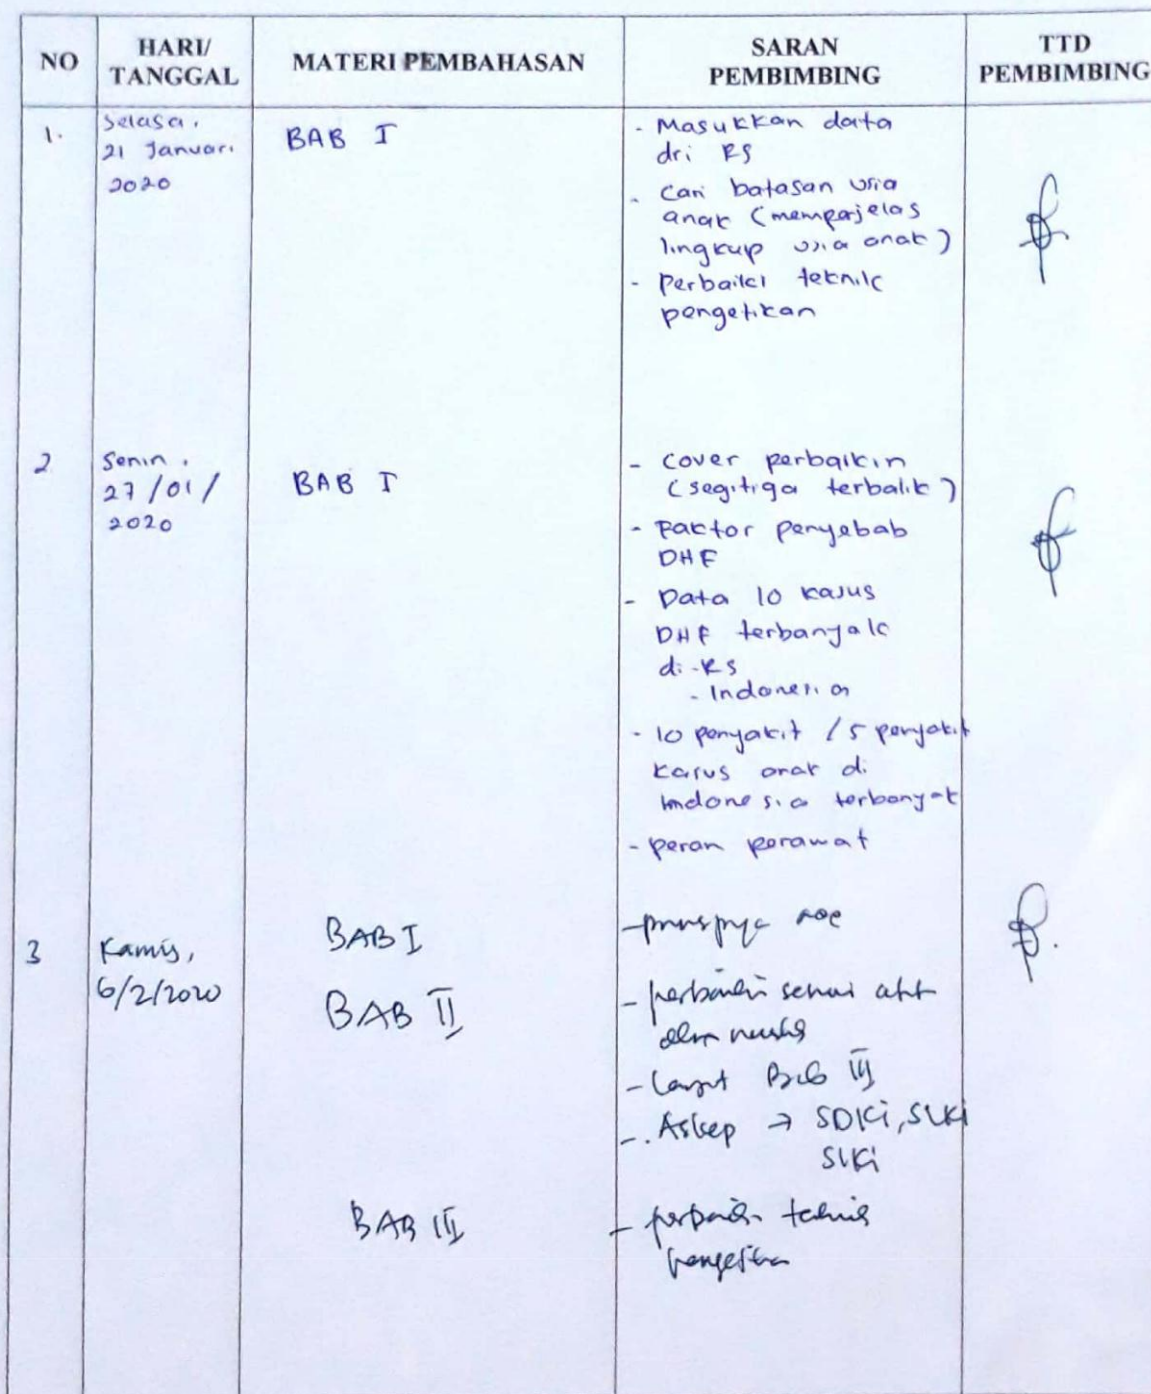 NO
HARI/
TANGGAL
MATERI PEMBAHASAN
SARAN
PEMBIMBING
TTD
PEMBIMBING
1.
Selasa,
21 Januari
2020
BAB I
- Masukkan data
dri RS
- Cari batasan usia
anak (memperjelas
lingkup usia anak)
- Perbaiki teknik
pengetikan
2
Senin,
27/01/
2020
BAB I
- Cover perbaikin
(segitiga terbalik)
- Faktor penyebab
DHF
- Data 10 kasus
DHF terbanyak
di - RS
- Indonesia
- 10 penyakit / 5 penyakit
kasus anak di
Indonesia terbanyak
- peran perawat
3
Kamis,
6/2/2020
BAB I
BAB II
- perbaiki
- Lanjut Bab III
- Askep → SDKI, SLKI
SIKI
BAB III
- perbaiki teknik
pengetikan